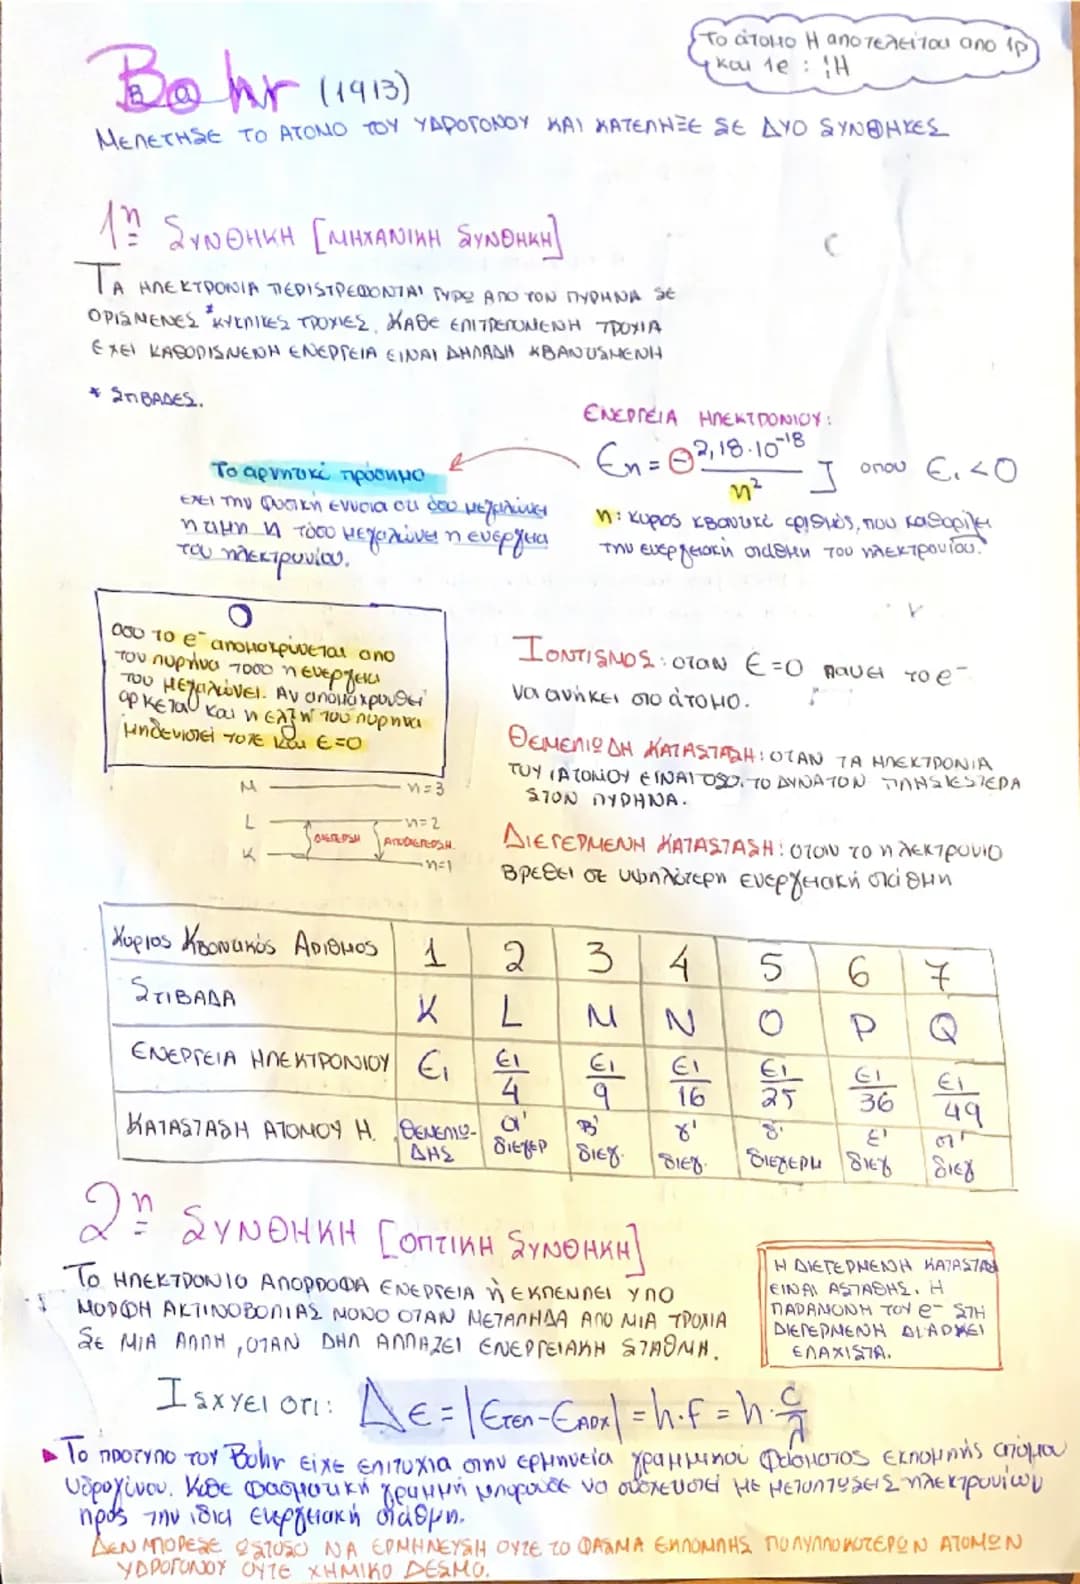 Το άτομο Η αποτελείται απο 1p
και 1e : ¦H
Bohr (1913)
ΜΕΛΕΤΗΣΕ ΤΟ ΑΤΟΜΟ ΤΟΥ ΥΔΡΟΓΟΝΟΥ ΚΑΙ ΚΑΤΕΛΗΞΕ ΣΕ ΔΥΟ ΣΥΝΘΗΚΕΣ
1η ΣΥΝΘΗΚΗ [ΜΗΧΑΝΙΚΗ ΣΥΝΘΗΚΗ]
ΤΑ ΗΛΕΚΤΡΟΝΙΑ ΠΕΡΙΣΤΡΕΦΟΝΤΑΙ ΓΥΡΩ ΑΠΟ ΤΟΝ ΠΥΡΗΝΑ ΣΕ
ΟΡΙΣΜΕΝΕΣ *ΚΥΚΛΙΚΕΣ ΤΡΟΧΙΕΣ. ΚΑΘΕ ΕΠΙΤΡΕΠΟΜΕΝΗ ΤΡΟΧΙΑ
ΕΧΕΙ ΚΑΘΟΡΙΣΜΕΝΗ ΕΝΕΡΓΕΙΑ ΕΙΝΑΙ ΔΗΛΑΔΗ ΚΒΑΝΤΙΣΜΕΝΗ
* ΣΤΙΒΑΔΕΣ.
ΕΝΕΡΓΕΙΑ ΗΛΕΚΤΡΟΝΙΟΥ:
Εn = - 2,18·10⁻¹⁸ / n² J οπου Ε₁<0
n: κυριος κβαντικό αριθμός, που καθορίζει
την ενεργειακή στάθμη του ηλεκτρονίου.
Το αρνητικό πρόσημο
έχει την φυσική έννοια οτι όσο μεγαλώνει
η τιμη n τόσο μεγαλώνει η ενέργεια
του ηλεκτρονίου.
οσο το e⁻ απομακρύνεται απο
τον πυρήνα τοσο η ενέργεια
του μεγαλώνει. Αν απομακρυνθεί
αρκετα και η έλξη του πυρηνα
μηδενιστεί τοτε και Ε=0
ΙΟΝΤΙΣΜΟΣ: οταν Ε=0 παυει το e⁻
να ανήκει στο άτομο.
ΘΕΜΕΛΙΩΔΗ ΚΑΤΑΣΤΑΣΗ: ΟΤΑΝ ΤΑ ΗΛΕΚΤΡΟΝΙΑ
ΤΟΥ ΑΤΟΜΟΥ ΕΙΝΑΙ ΟΣΟ ΤΟ ΔΥΝΑΤΟΝ ΠΛΗΣΙΕΣΤΕΡΑ
ΣΤΟΝ ΠΥΡΗΝΑ.
M n=3
L n=2
ΔΙΕΓΕΡΣΗ ΑΠΟΔΙΕΓΕΡΣΗ
K n=1
ΔΙΕΓΕΡΜΕΝΗ ΚΑΤΑΣΤΑΣΗ: οταν το ηλεκτρονιο
βρεθει σε υψηλότερη ενεργειακή στάθμη
Κυριος Κβαντικός Αριθμος 1 2 3 4 5 6 7
ΣΤΙΒΑΔΑ K L M N O P Q
ΕΝΕΡΓΕΙΑ ΗΛΕΚΤΡΟΝΙΟΥ Ε₁ Ε1/4 Ε1/9 Ε1/16 Ε1/25 Ε1/36 Ε1/49
ΚΑΤΑΣΤΑΣΗ ΑΤΟΜΟΥ Η. ΘΕΜΕΛΙΩ- α' Β' γ' δ' ε' στ'
ΔΗΣ διεγερ διεγ. διεγ. διεγερμ διεγ διεγ
2η ΣΥΝΘΗΚΗ [ΟΠΤΙΚΗ ΣΥΝΘΗΚΗ]
ΤΟ ΗΛΕΚΤΡΟΝΙΟ ΑΠΟΡΡΟΦΑ ΕΝΕΡΓΕΙΑ ή ΕΚΠΕΜΠΕΙ ΥΠΟ
ΜΟΡΦΗ ΑΚΤΙΝΟΒΟΛΙΑΣ ΜΟΝΟ ΟΤΑΝ ΜΕΤΑΠΗΔΑ ΑΠΟ ΜΙΑ ΤΡΟΧΙΑ
ΣΕ ΜΙΑ ΑΛΛΗ, ΟΤΑΝ ΔΗΛ ΑΛΛΑΖΕΙ ΕΝΕΡΓΕΙΑΚΗ ΣΤΑΘΜΗ.
Η ΔΙΕΓΕΡΜΕΝΗ ΚΑΤΑΣΤΑΣ
ΕΙΝΑΙ ΑΣΤΑΘΗΣ. Η
ΠΑΡΑΜΟΝΗ ΤΟΥ e⁻ ΣΤΗ
ΔΙΕΓΕΡΜΕΝΗ ΔΙΑΡΚΕΙ
ΕΛΑΧΙΣΤΑ.
ΙΣΧΥΕΙ ΟΤΙ: ΔΕ=|Ετελ-Εαρχ|=h·f=h·c/λ
Το πρότυπο του Bohr είχε επιτυχια στην ερμηνεία γραμμικού φάσματος εκπομπής ατόμου
υδρογόνου. Κάθε φασματική γραμμή μπορουσε να συσχετιστεί με μεταπτωσεις ηλεκτρονίων
προς την ίδια ενεργειακή στάθμη.
ΔΕΝ ΜΠΟΡΕΣΕ ΩΣΤΟΣΟ ΝΑ ΕΡΜΗΝΕΥΣΗ ΟΥΤΕ ΤΟ ΦΑΣΜΑ ΕΚΠΟΜΠΗΣ ΠΟΛΥΠΛΟΚΟΤΕΡΩΝ ΑΤΟΜΩΝ
ΥΔΡΟΓΟΝΟΥ ΟΥΤΕ ΧΗΜΙΚΟ ΔΕΣΜΟ.